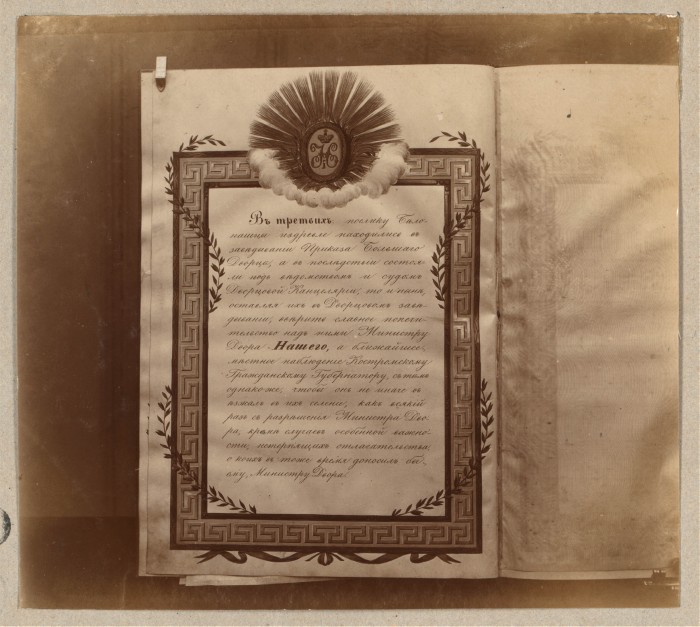 Въ третьихъ, поелику Бѣло-
пашцы издревле находились въ
завѣдыванiи Приказа Большаго
Дворца, а въ послѣдствiи состоя-
ли подъ вѣдомствомъ и судомъ
Дворцовой Канцелярiи, то и нынѣ,
оставляя ихъ въ Дворцовомъ завѣ-
дыванiи, ввѣрить главное попечи-
тельство надъ ними, Министру
Двора Нашего, а ближайшее
мѣстное наблюденiе Костромскому
Гражданскому Губернатору, съ тѣмъ
однакоже, чтобъ онъ не иначе въ-
ѣзжалъ въ ихъ селенiе, какъ всякiй
разъ съ разрѣшенiя Министра Дво-
ра, кромѣ случаевъ особенной важно-
сти, нетерпящихъ отлагательства,
о коихъ въ тоже время доноситъ
ему, Министру Двора.